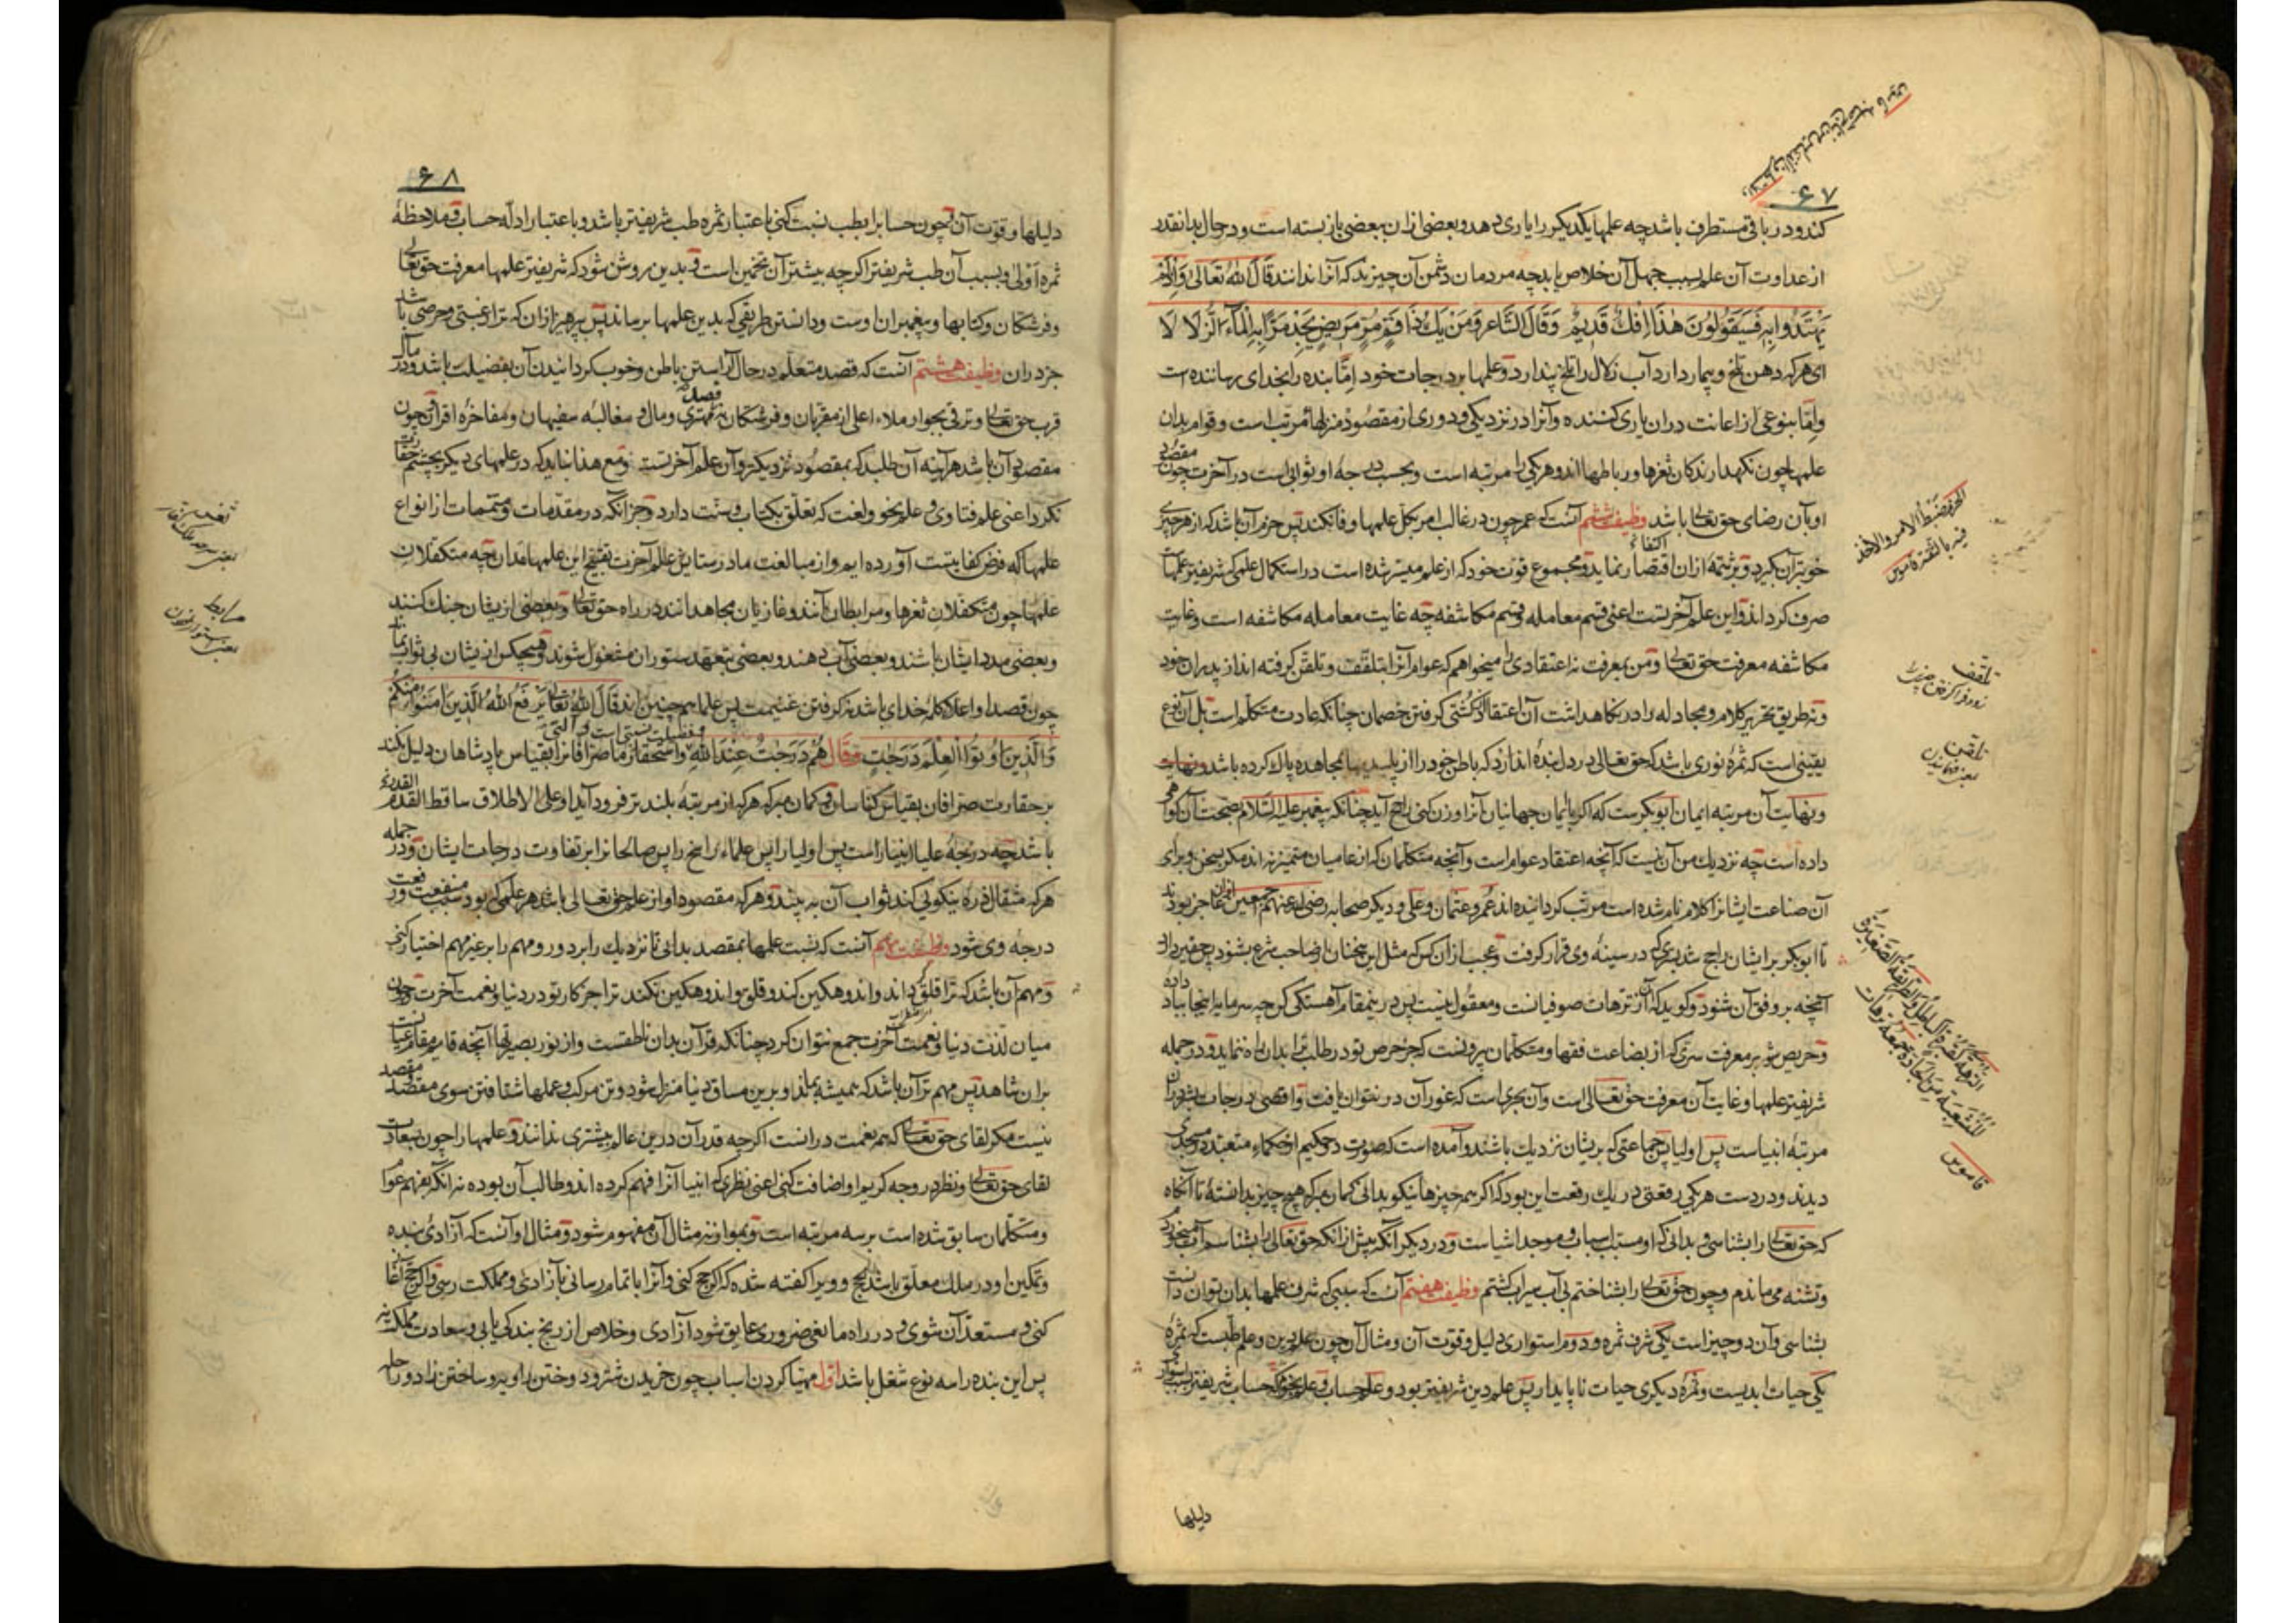 ۶۷
کند و در باقی مستطرف باشد چه علمها یکدیکر را یاری دهد و بعضی ازان ببعضی باز بسته است و در حال بدانقدر
از عداوت آن علم بسبب جهل آن خلاص یابد چه مردمان دشمن آن چیزند که آنرا ندانند قال الله تعالی وَاِذْ لَمْ
یَهْتَدُوا بِهِ فَسَیَقُولُونَ هٰذَا اِفْكٌ قَدِیمٌ وَقَالَ الشَّاعِر وَمَنْ یَكُ ذَا فَمٍ مُرٍّ مَرِیضٍ یَجِدْ مُرًّا بِهِ الْمَآءَ الزُّلَا لَا
ای هر که دهن تلخ و بیمار دارد آب زلال را تلخ پندارد و علمها بر درجات خود اِمّا بنده را بخدای رساننده است
واِمّا بنوعی از اعانت دران یاری کننده و آنرا در نزدیکی و دوری از مقصود منزلها مرتب است و قوام بدان
علمها چون نکهدارندکان ثغرها و رباطها اند و هر یکی را مرتبه است و بحسب درجه او ثوابی است در آخرت چون مقصد وی
او بآن رضای حق تعالی باشد وظیفت ششم آنست که عمر چون در غالب امر بکل علمها وفا نکند پس حزم آن باشد که از هر چیزی
خوبتر آن کیرد و بشمّهٔ ازان اقتصار نماید و مجموع قوت خود که از علم میسر شده است در استکمال علمی که شریفتر علمها
صرف کرداند و این علم آخرتست اعنی قسم معامله و قسم مکاشفه چه غایت معامله مکاشفه است و غایت
مکاشفه معرفت حق تعالی و من بمعرفت نه اعتقادی را میخواهم که عوام آنرا بتلقّف و تلقّن کرفته اند از پدران خود
ونه طریق تحریر کلام و مجادله را در نکاهداشت آن اعتقاد که کشتی کرفتن خصمان چنانکه عادت متکلم است بل آن نوع
یقینی است که ثمرهٔ نوری باشد که حق تعالی در دل بندهٔ اندازد که باطن خود را از پلیدیها بمجاهده پاك کرده باشد
و بنهایت آن مرتبه ایمان ابوبکر ست که اکر بایمان جهانیان آنرا وزن کنی راجح آید چنانکه پیغمبر علیه السلام بصحت آن کواهی
داده است چه نزدیك من آن نیست که آنچه اعتقاد عوام است و آنچه متکلمان که از عامیان متمیز نه اند مکر بسخن و برای
آن صناعت ایشانرا کلام نام شده است مرتب کردانیده اند عمر و عثمان و علی و دیکر صحابه رضی الله عنهم اجمعین ازان عاجز بودند
تا ابوبکر بر ایشان راجح شد بسرّی که در سینه وی قرار کرفت و عجب از آن کس که مثل این سخنان از صاحب شرع بشنود پس حقیر دارد
آنچه بر وفق آن شنود و کوید که آن از ترهات صوفیانست و معقول نیست پس درینمقام آهستکی کن چه سرمایه اینجا بباد داده
و حریص شو بر معرفت سرّی که از بضاعت فقها و متکلمان بیرونست که جز حرص تو در طلب ترا بدان راه ننماید و در جمله
شریفتر علمها و غایت آن معرفت حق تعالی است و آن بحری است که غور آن در نتوان یافت و اقصی درجات بشر دران
مرتبهٔ انبیاست پس اولیا پس جماعتی که بریشان نزدیك باشند و آمده است که صورت دو حکیم از حکماء متعبد در مسجدی
دیدند و در دست هر یکی رقعتی در یك رقعت این بود که اکر همه چیزها نیکو بدانی کمان مبر که هیچ چیز بدانستهٔ تا آنکاه
که حق تعالی را بشناسی و بدانی که او مسبّب اسباب و موجد اشیاست و در دیکر آنکه پیش از آنکه حق تعالی را بشناسم آب میخوردم
و تشنه می ماندم و چون حق تعالی را بشناختم بی آب سیراب کشتم وظیفت هفتم آنست که سببی که شرف علمها بدان توان دانست
بشناسی و آن دو چیز است یکی شرف ثمره و دوم استواری دلیل و قوت آن و مثال آن چون علم دین و علم طبّست که ثمرهٔ
یکی حیات ابدیست و ثمرهٔ دیکری حیات ناپایدار پس علم دین شریفتر بود و علم حساب و علم نجوم که حساب شریفتر
الحزم ضبط الامر والاخذ
فیه بالثقة قاموس
تلقف
زود فرا کرفتن چیزی
تلقن
قاموس
دلیلها
۶۸
دلیلها و قوت آن و چون حسابرا بطب نسبت کنی باعتبار ثمره طب شریفتر باشد و باعتبار ادله حساب و ملاحظهٔ
ثمره اَوْلی و بسبب آن طب شریفتر اکرچه بیشتر آن تخمین است و بدین روش شود که شریفتر علمها معرفت حق تعالی
و فرشتکان و کتابها و پیغمبران اوست و دانستن طریقی که بدین علمها برساند پس بپرهیز ازان که ترا رغبتی و حرصی باشد
جز دران وظیفت هشتم آنست که قصد متعلم در حال آراستن باطن و خوب کردانیدن آن بفضیلت باشد و در مآل
قرب حق تعالی و ترقی بجوار ملاء اعلی از مقربان و فرشتکان نه قصد مهتری و مال و مغالبهٔ سفیهان و مفاخرهٔ اقران و چون
مقصد وی آن باشد هر آینه آن طلبد که بمقصود نزدیکتر و آن علم آخرتست و مع هذا نباید که در علمهای دیکر بچشم حقارت
نکرد اعنی علم فتاوی و علم نحو و لغت که تعلق بکتاب و سنت دارد و جز آنکه در مقدمات و متممات از انواع
علمها که فرض کفایتست آورده ایم و از مبالغت ما در ستایش علم آخرت تقبیح این علمها مدان چه متکفلان
علمها چون متکفلان ثغرها و مرابطان آنند و غازیان مجاهدانند در راه حق تعالی و بعضی ازیشان جنك کنند
و بعضی مدد ایشان باشند و بعضی آب دهند و بعضی بتعهد ستوران مشغول شوند و هیچکس ازیشان بی ثواب نماند
چون قصد او اعلاء کلمهٔ خدای باشد نه کرفتن غنیمت پس علما همچنین اند قال الله تعالی یَرْفَعِ اللهُ الَّذِینَ اٰمَنُوا مِنْکُمْ
وَالَّذِینَ اُوتُوا الْعِلْمَ دَرَجٰتٍ وقال هُمْ دَرَجٰتٌ عِنْدَ اللهِ و فضیلت نسبتی است و استحقار ما صرافانرا بقیاس پادشاهان دلیل نکند
بر حقارت صرافان بقیاس کناسان و کمان مبر که هر که از مرتبهٔ بلندتر فرود آید او علی الاطلاق ساقط القدر
باشد چه درجهٔ علیا انبیا راست پس اولیا را پس علماء راسخ را پس صالحانرا بر تفاوت درجات ایشان و در جمله
هر که مثقال ذرهٔ نیکویی کند ثواب آن ببیند و هر که مقصود او از علم حق تعالی باشد هر علمی که بود سبب منفعت و رفعت
درجهٔ وی شود وظیفت نهم آنست که نسبت علمها بمقصد بدانی تا نزدیك را بر دور و مهم را بر غیر مهم اختیار کنی
و مهم آن باشد که ترا قلق کرداند و اندوهکین کند و قلق و اندوهکین نکند ترا جز کار تو در دنیا و نعمت آخرت و چون
میان لذت دنیا و نعمت آخرت جمع نتوان کرد چنانکه قرآن بدان ناطقست و از نور بصیرتها آنچه قایم مقام عیانست
بران شاهد پس مهم تر آن باشد که همیشه بماند و برین مساق دنیا منزل شود و تن مرکب و عملها شتافتن سوی مقصد و مقصد
نیست مکر لقای حق تعالی که همه نعمت درانست اکرچه قدر آن درین عالم بیشتری ندانند و علمها را چون بسعادت
لقای حق تعالی و نظر در وجه کریم او اضافت کنی اعنی نظری که انبیا آنرا فهم کرده اند و طالب آن بوده نه آنکه بفهم عوام
و متکلمان سابق شده است بر سه مرتبه است و بموازنه مثال آن مفهوم شود و مثال او آنست که آزادی بنده
و تمکین او در ملك معلّق باشد بحج و ویرا کفته شده که اکر حج کنی و آنرا باتمام رسانی بآزادی و مملکت رسی و اکر حج آغاز
کنی و مستعد آن شوی و در راه مانعی ضروری عایق شود آزادی و خلاص از رنج بندکی یابی و سعادت مملکت نه
پس این بنده را سه نوع شغل باشد اول مهیّا کردن اسباب چون خریدن شتر و دوختن راویه و ساختن زاد و راحله
مرابط